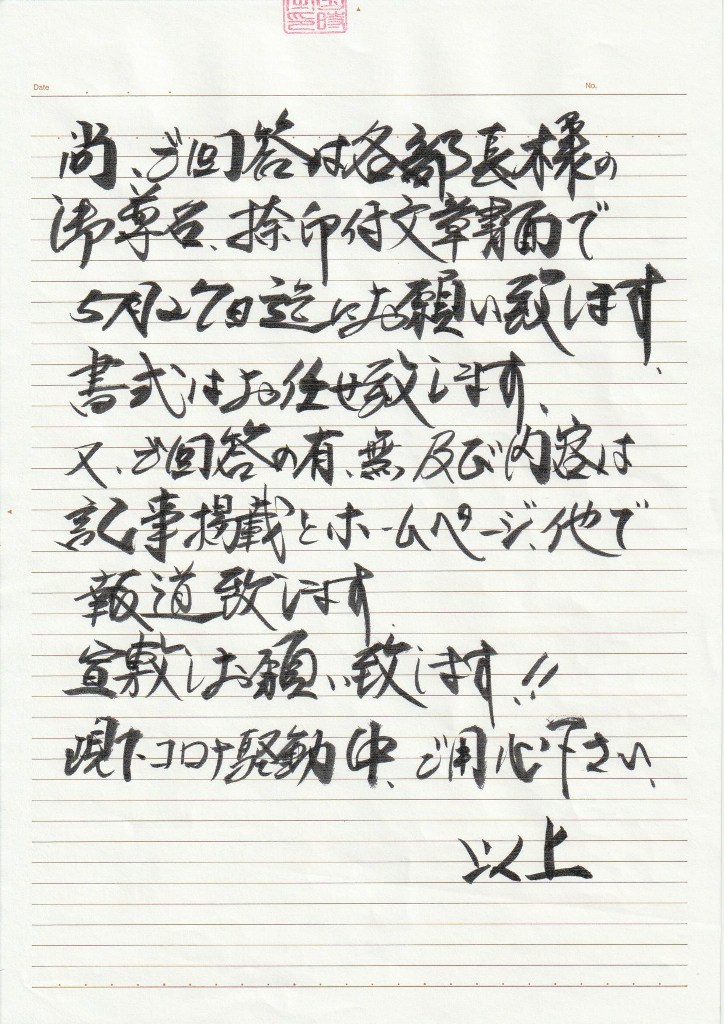 Date
No.
尚、ご回答は各部長様の
御尊名、捺印付文章書面で
5月27日迄にお願い致します、
書式はお任せ致します、
又、ご回答の有、無、及び内容は
記事掲載とホームページ、他で
報道致します、
宜敷しお願い致します、!!
現下、コロナ騒動中、ご用心下さい、
以上